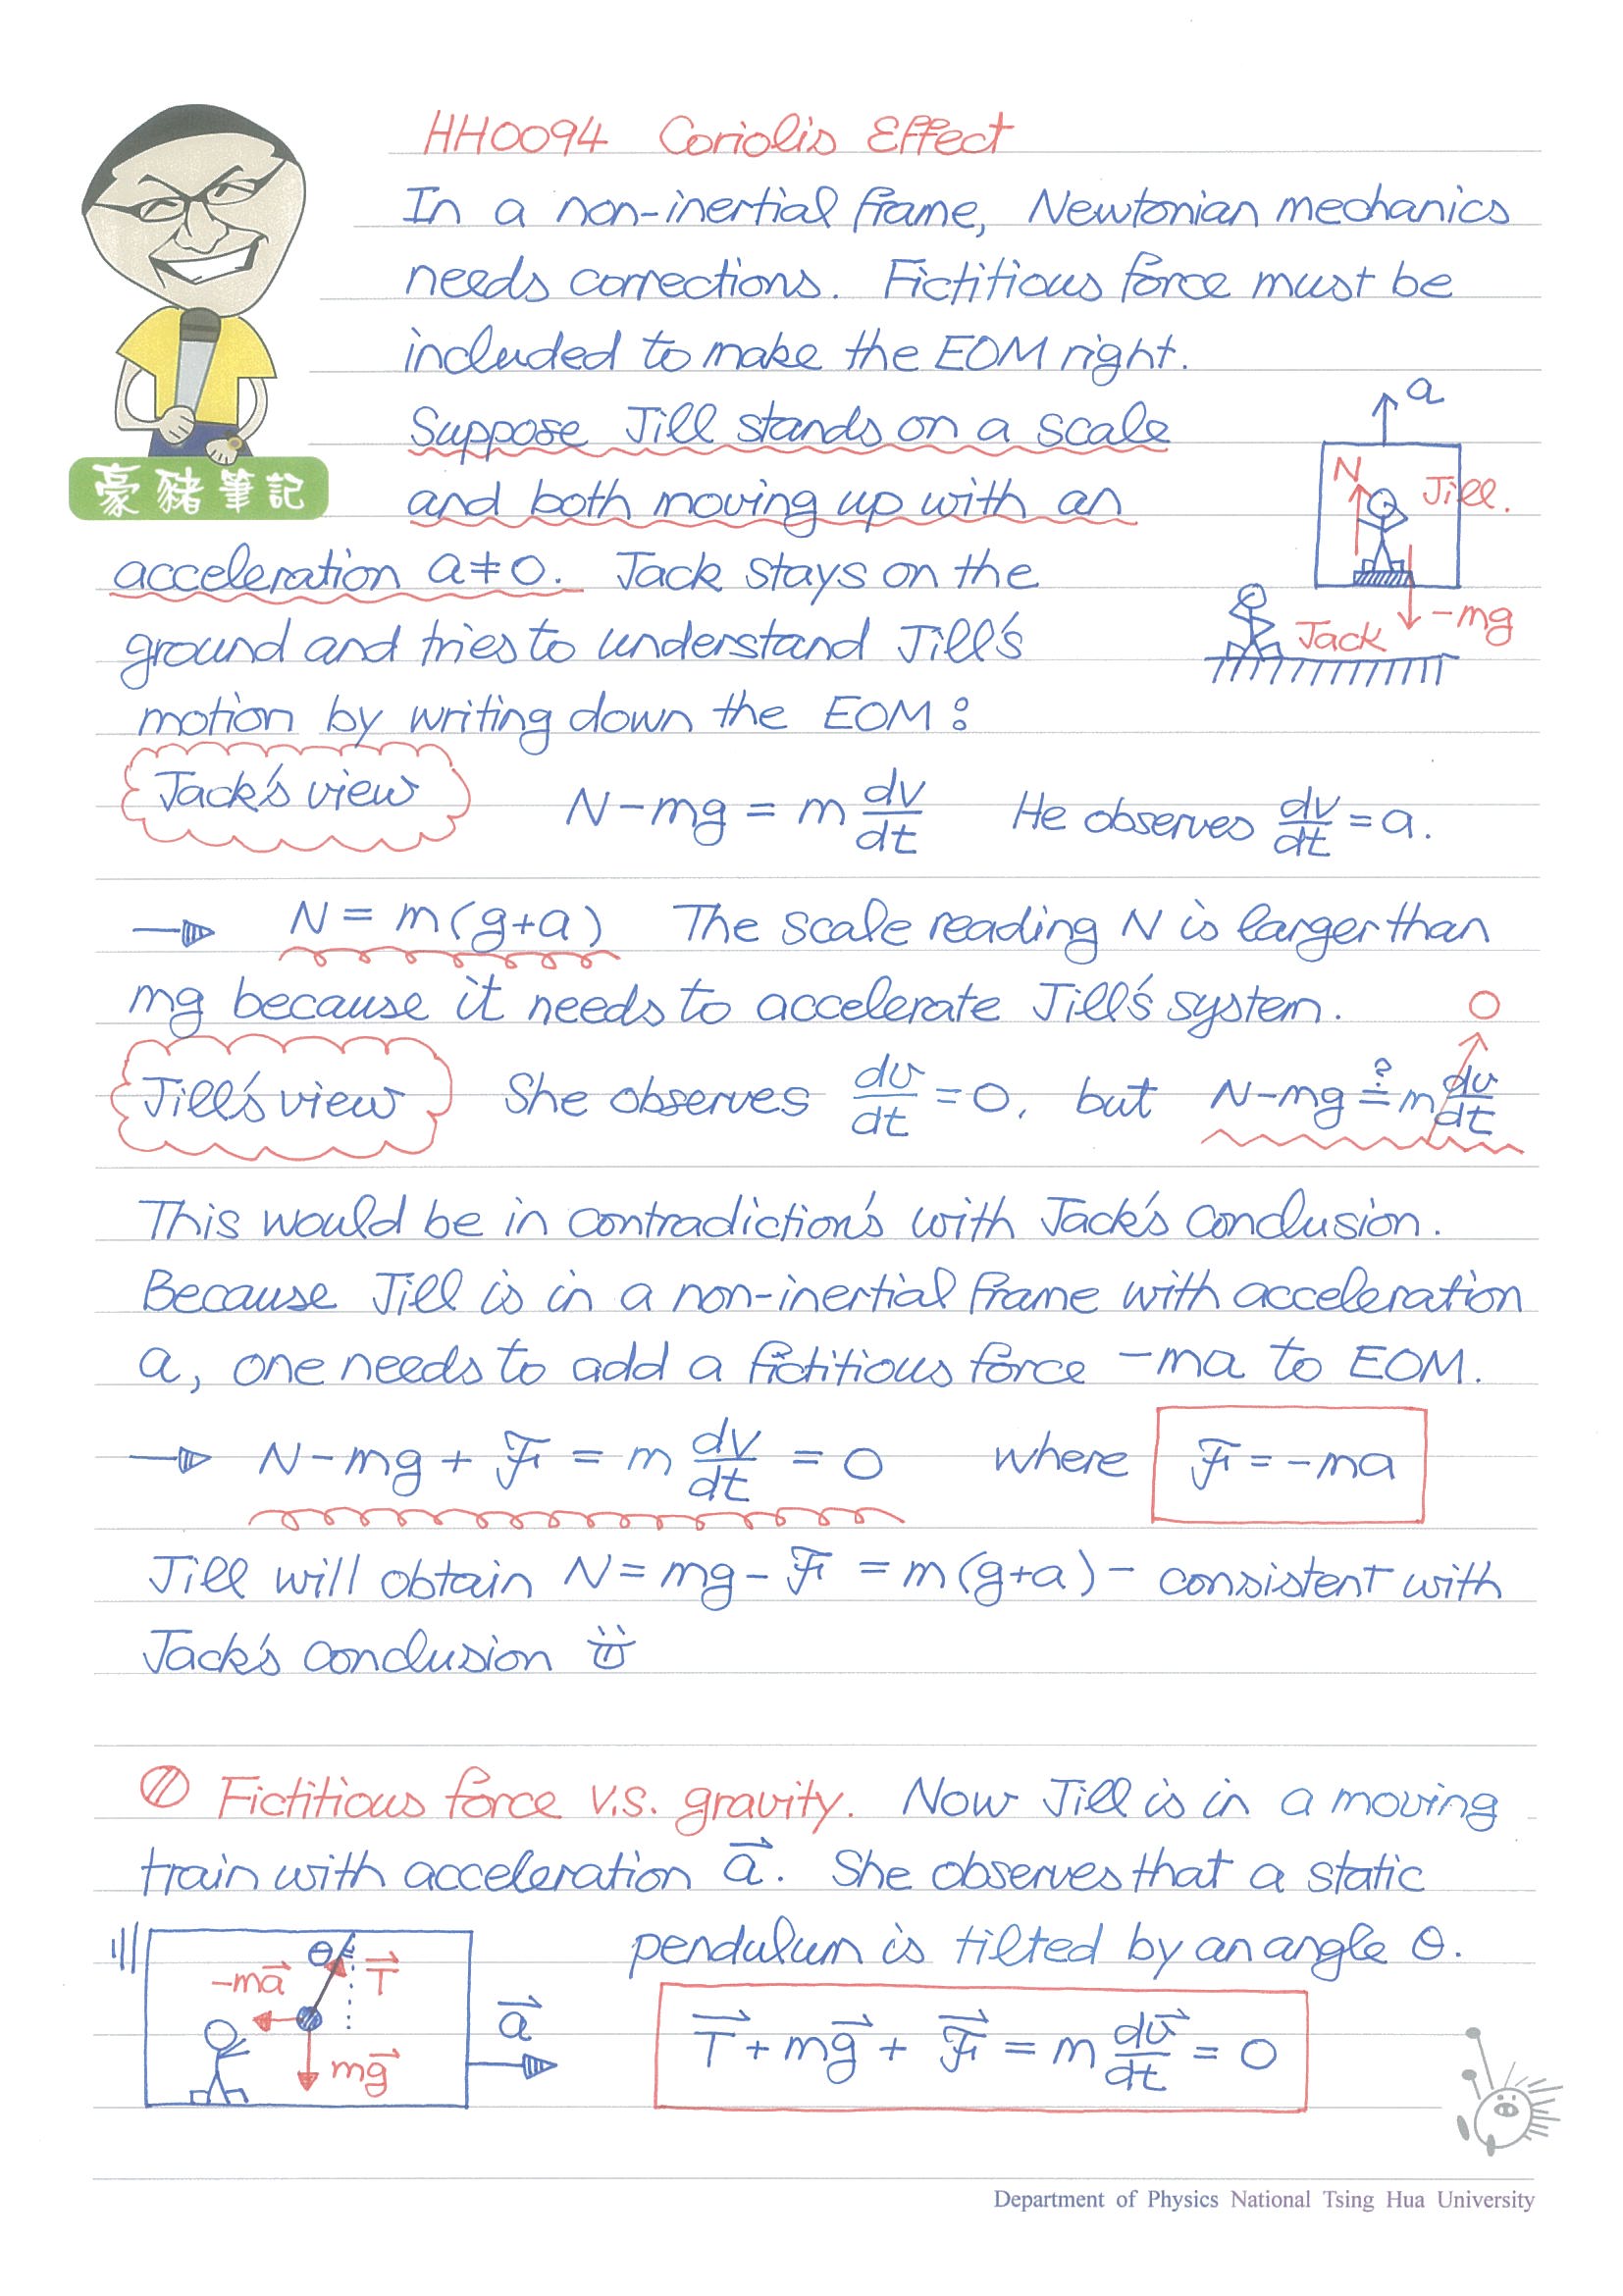 HH0094 Coriolis Effect
In a non-inertial frame, Newtonian mechanics
needs corrections. Fictitious force must be
included to make the EOM right.
a
Suppose Jill stands on a scale
N Jill.
豪豬筆記
and both moving up with an
acceleration a≠0. Jack stays on the
-mg
ground and tries to understand Jill's
Jack
motion by writing down the EOM:
Jack's view N-mg = m dv/dt He observes dv/dt = a.
N = m(g+a) The scale reading N is larger than
mg because it needs to accelerate Jill's system. 0
Jill's view She observes dv/dt = 0, but N-mg ≟ m dv/dt
This would be in contradiction's with Jack's conclusion.
Because Jill is in a non-inertial frame with acceleration
a, one needs to add a fictitious force -ma to EOM.
N-mg + ℱ = m dv/dt = 0 where ℱ = -ma
Jill will obtain N = mg - ℱ = m(g+a) - consistent with
Jack's conclusion
Fictitious force v.s. gravity. Now Jill is in a moving
train with acceleration a⃗. She observes that a static
pendulum is tilted by an angle θ.
θ T⃗
-ma⃗
a⃗
mg⃗
T⃗ + mg⃗ + ℱ⃗ = m dv⃗/dt = 0
Department of Physics National Tsing Hua University